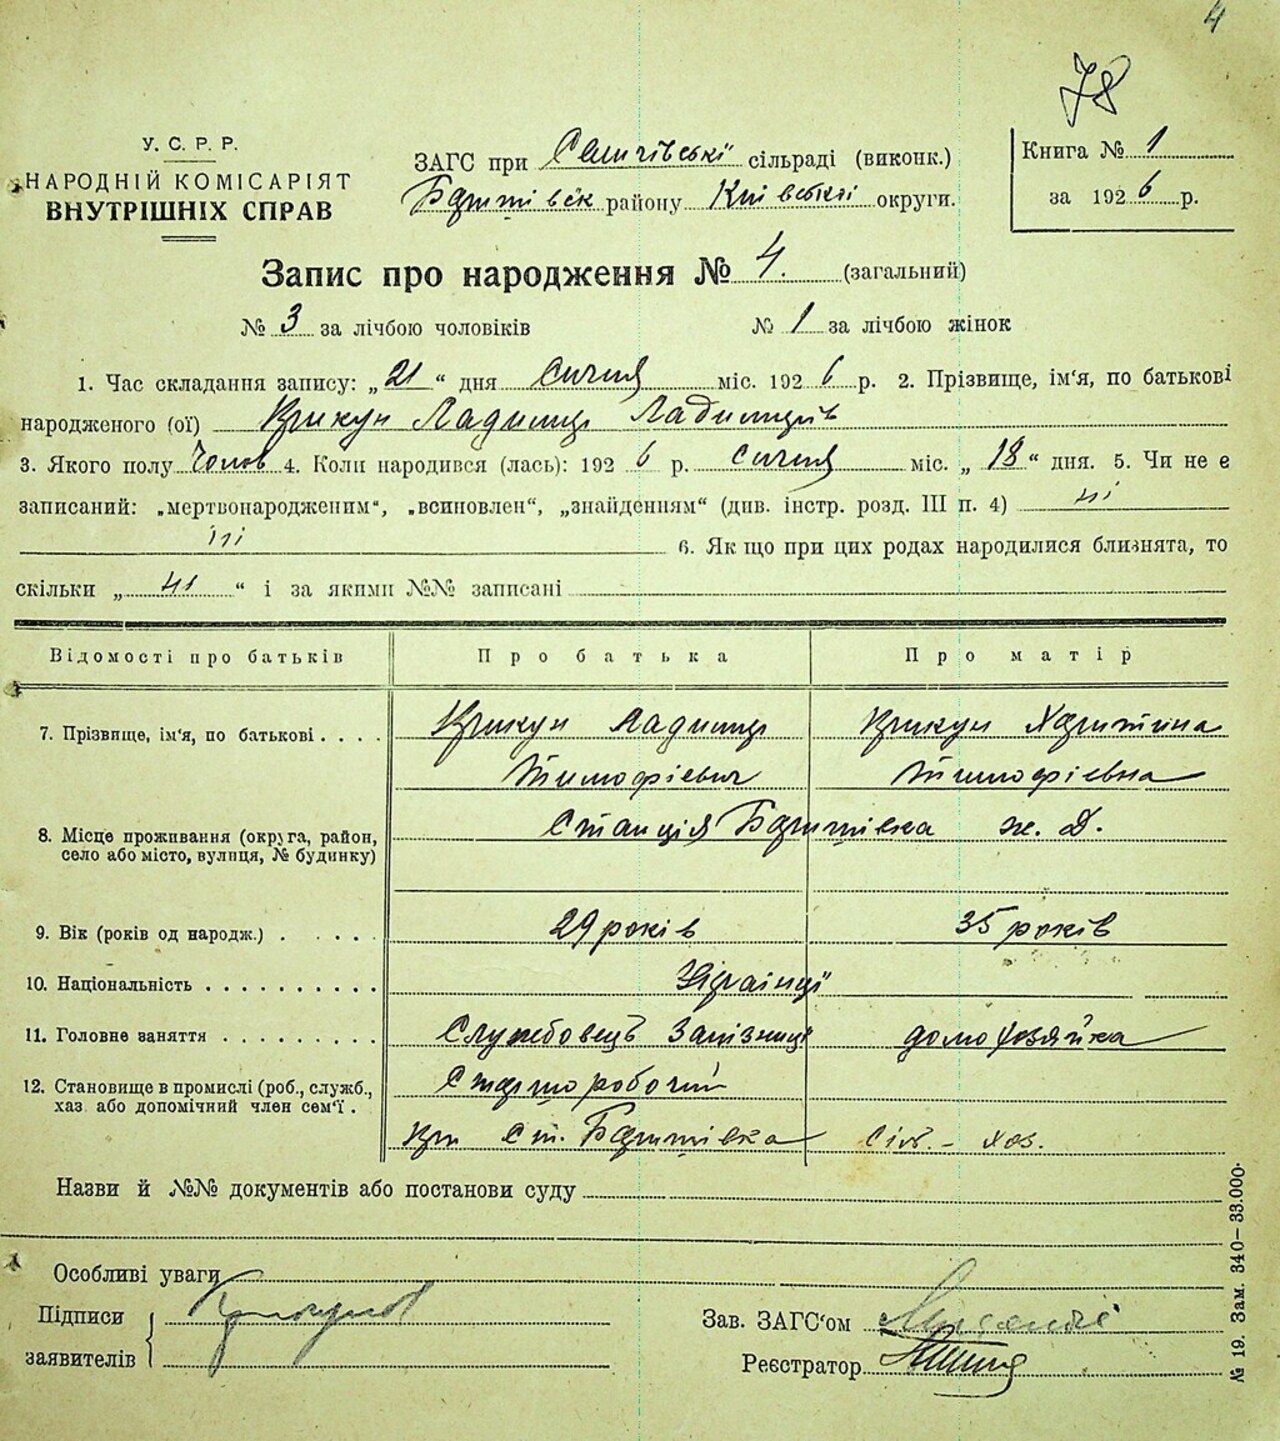 4
78
У. С. Р. Р.
НАРОДНІЙ КОМІСАРІЯТ
ВНУТРІШНІХ СПРАВ
ЗАГС при сільраді (виконк.)
району Київської округи.
Книга № 1
за 1926 р.
Запис про народження № 4. (загальний)
№ 3 за лічбою чоловіків № 1 за лічбою жінок
1. Час складання запису: „21“ дня Січня міс. 1926 р. 2. Прізвище, ім'я, по батькові
народженого (ої) Крикун
3. Якого полу Чолов 4. Коли народився (лась): 1926 р. Січня міс. „18“ дня. 5. Чи не є
записаний: „мертвонародженим“, „всиновлен“, „знайденням“ (див. інстр. розд. III п. 4) ні
ні 6. Як що при цих родах народилися близнята, то
скільки „ні“ і за якими №№ записані
Відомості про батьків Про батька Про матір
7. Прізвище, ім'я, по батькові . . . . Крикун Крикун Харитина
Тимофієвич Тимофієвна
8. Місце проживання (округа, район,
село або місто, вулиця, № будинку)
Станція ж. Д.
9. Вік (років од народж.) . . . . . 29 років 35 років
10. Національність . . . . . . . . . . Українці
11. Головне заняття . . . . . . . . . Службовець Залізниці домохозяйка
12. Становище в промислі (роб., служб.,
хаз. або допомічний член сем'ї .
робочий
при Ст. Сіль.-хоз.
Назви й №№ документів або постанови суду
Особливі уваги
Підписи
заявителів
Зав. ЗАГС'ом
Реєстратор
№ 19. Зам. 340—33.000.